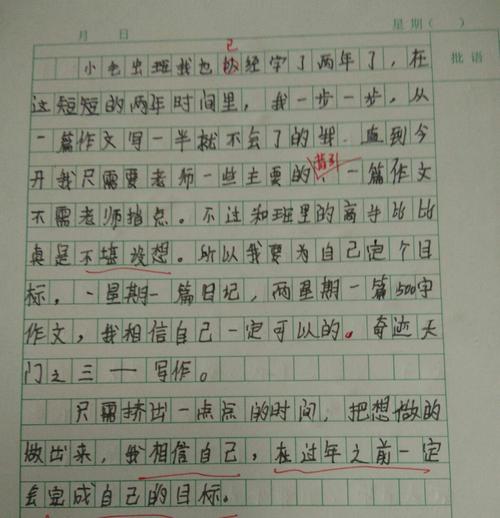 月 日 星期( )
批语
已
小也出班我也经学了两年了，在
这短短的两年时间里，我一步一步，从
一篇作文写一半就不会了的我.直到今
天我只需要老师一些主要的 一篇作文
不需老师指点。不过和班里的高手比比
真是不堪设想。所以我要为自己定个目
标。一星期一篇日记，两星期一篇500字
作文，我相信自己一定可以的。奇迹天
门之三——写作。
只需挤出一点点的时间，把想做的
做出来，我相信自己，在过年之前一定
会完成自己的目标。